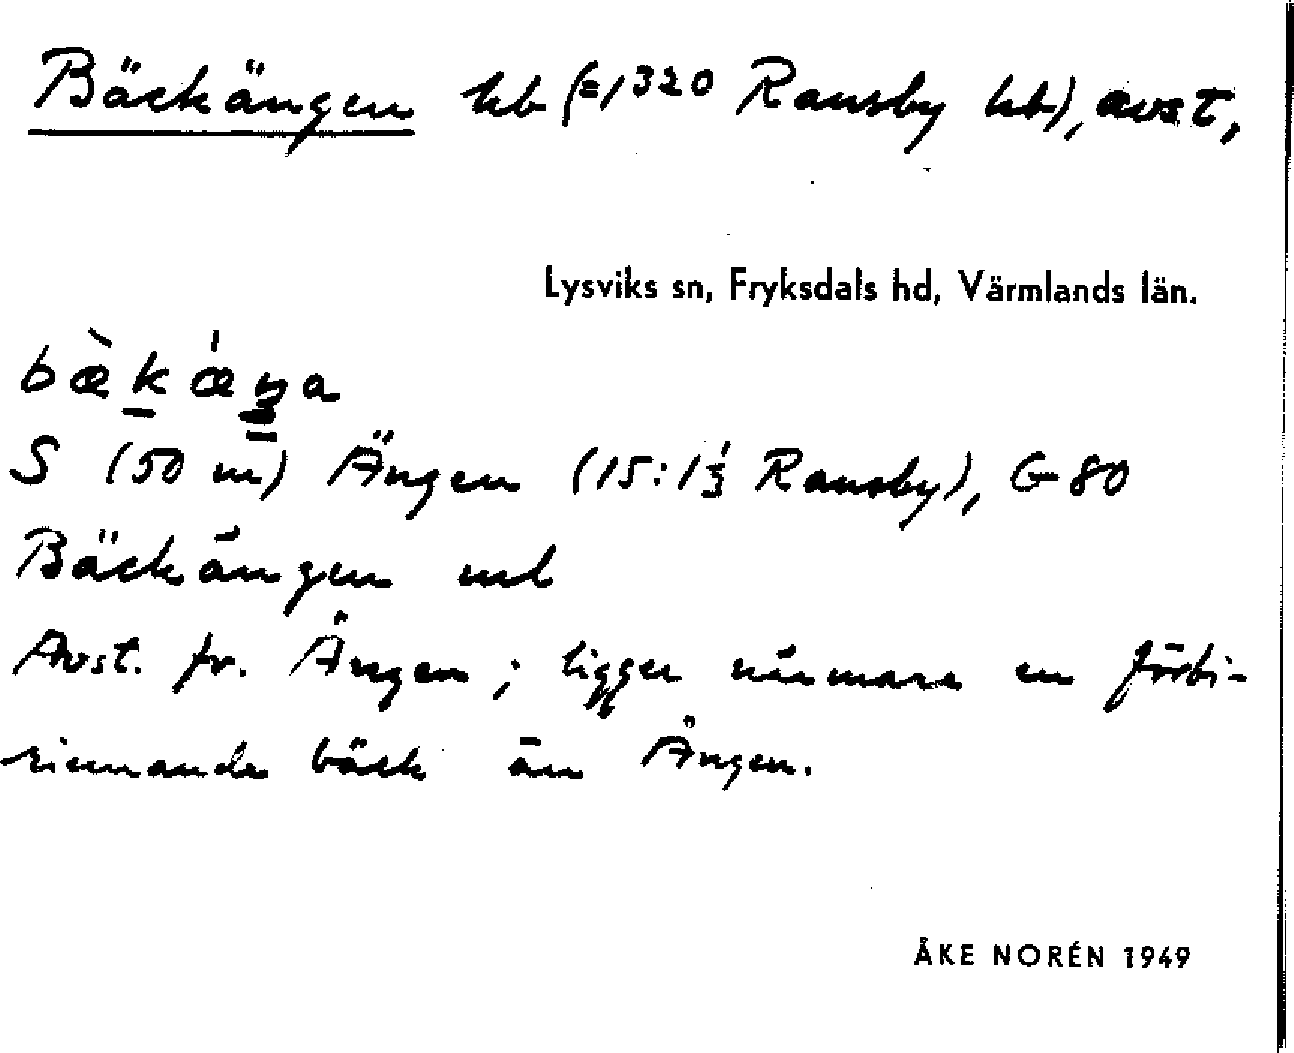 Bäckängen hb (=1³²⁰ Ransby hb), avst,
Lysviks sn, Fryksdals hd, Värmlands län.
bæ̀kǽŋa
S (50 m) Ängen (15: Ransby), G 80
Bäckängen ml
Avst. fr. Ängen; ligger närmare en förbi-
rinnande bäck än Ängen.
ÅKE NORÉN 1949